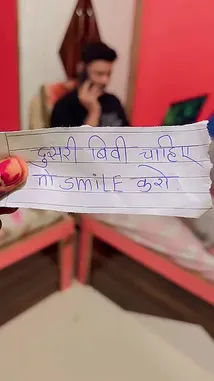 दुसरी बिवी चाहिए
तो SMiLE करो